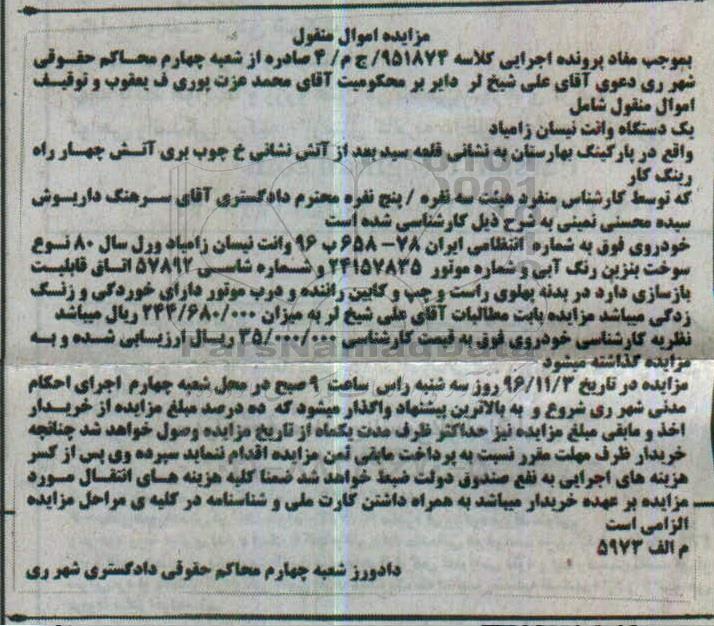 مزایده اموال منقول
بموجب مفاد پرونده اجرایی کلاسه ۹۵۱۸۷۴/ ج م/ ۴ صادره از شعبه چهارم محاکم حقوقی
شهر ری دعوی آقای علی شیخ لر دایر بر محکومیت آقای محمد عزت پوری ف یعقوب و توقیف
اموال منقول شامل
یک دستگاه وانت نیسان زامیاد
واقع در پارکینگ بهارستان به نشانی قلعه سید بعد از آتش نشانی خ چوب بری آتش چهار راه
رینگ کار
که توسط کارشناس منفرد هیئت سه نفره / پنج نفره محترم دادگستری آقای سرهنگ داریوش
سیده محسنی نمینی به شرح ذیل کارشناسی شده است
خودروی فوق به شماره انتظامی ایران ۷۸- ۶۵۸ ب ۹۶ وانت نیسان زامیاد ورل سال ۸۰ نوع
سوخت بنزین رنگ آبی و شماره موتور ۲۴۱۵۷۸۳۵ و شماره شاسی ۵۷۸۹۲ اتاق قابلیت
بازسازی دارد در بدنه پهلوی راست و چپ و کابین راننده و درب موتور دارای خوردگی و زنگ
زدگی میباشد مزایده بابت مطالبات آقای علی شیخ لر به میزان ۲۴۴/۶۸۰/۰۰۰ ریال میباشد
نظریه کارشناسی خودروی فوق به قیمت کارشناسی ۳۵/۰۰۰/۰۰۰ ریال ارزیابی شده و به
مزایده گذاشته میشود
مزایده در تاریخ ۹۶/۱۱/۳ روز سه شنبه راس ساعت ۹ صبح در محل شعبه چهارم اجرای احکام
مدنی شهر ری شروع و به بالاترین پیشنهاد واگذار میشود که ده درصد مبلغ مزایده از خریدار
اخذ و مابقی مبلغ مزایده نیز حداکثر ظرف مدت یکماه از تاریخ مزایده وصول خواهد شد چنانچه
خریدار ظرف مهلت مقرر نسبت به پرداخت مابقی ثمن مزایده اقدام ننماید سپرده وی پس از کسر
هزینه های اجرایی به نفع صندوق دولت ضبط خواهد شد ضمنا کلیه هزینه های انتقال مورد
مزایده بر عهده خریدار میباشد به همراه داشتن کارت ملی و شناسنامه در کلیه ی مراحل مزایده
الزامی است
م الف ۵۹۷۳
دادورز شعبه چهارم محاکم حقوقی دادگستری شهر ری
ParsNamadData